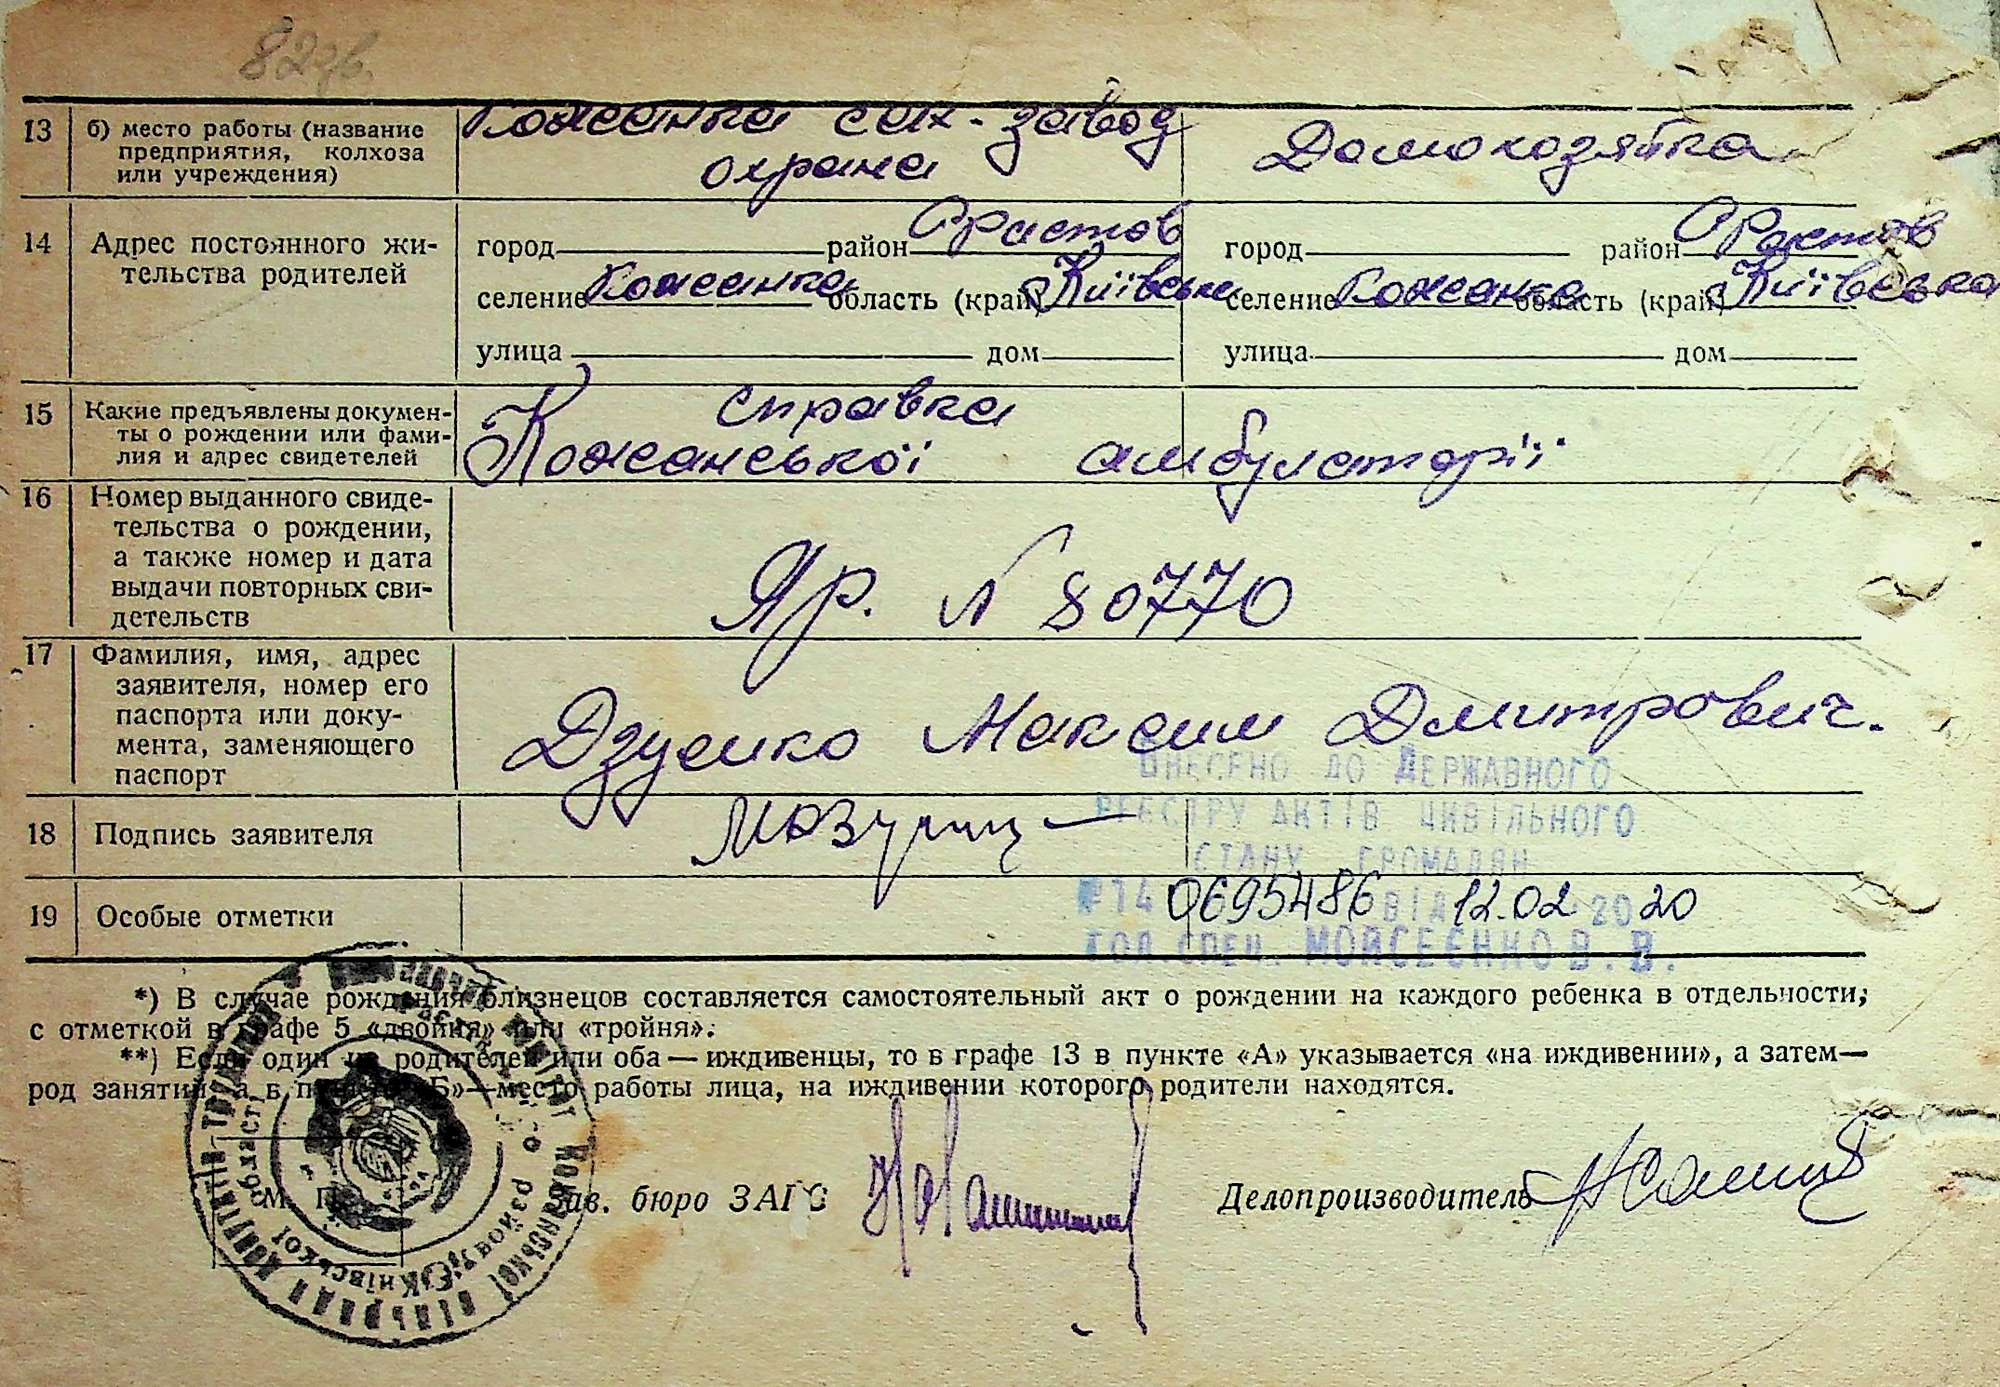 82зв.
13 б) место работы (название предприятия, колхоза или учреждения)
Кожанка сах-завод
охрана
Домохозяйка
14 Адрес постоянного жительства родителей
город район Фастов
селение Кожанка область (край) Київська
улица дом
город район Фастов
селение Кожанка область (край) Київська
улица дом
15 Какие предъявлены докумен-
ты о рождении или фами-
лия и адрес свидетелей
справка
Кожанської амбулаторії
16 Номер выданного свиде-
тельства о рождении,
а также номер и дата
выдачи повторных сви-
детельств
Яр. N 80770
17 Фамилия, имя, адрес
заявителя, номер его
паспорта или доку-
мента, заменяющего
паспорт
Максим Дмитрович.
18 Подпись заявителя
19 Особые отметки
Внесено до Державного
реєстру актів цивільного
стану громадян
№14 0695486 від 12.02 2020
гол.спец. Мойсеєнко В. В.
*) В случае рождения близнецов составляется самостоятельный акт о рождении на каждого ребенка в отдельности,
с отметкой в графе 5 «двойня» или «тройня».
**) Если один из родителей или оба — иждивенцы, то в графе 13 в пункте «А» указывается «на иждивении», а затем—
род занятий, а в пункте «Б»—место работы лица, на иждивении которого родители находятся.
М. П. Зав. бюро ЗАГС
Делопроизводитель